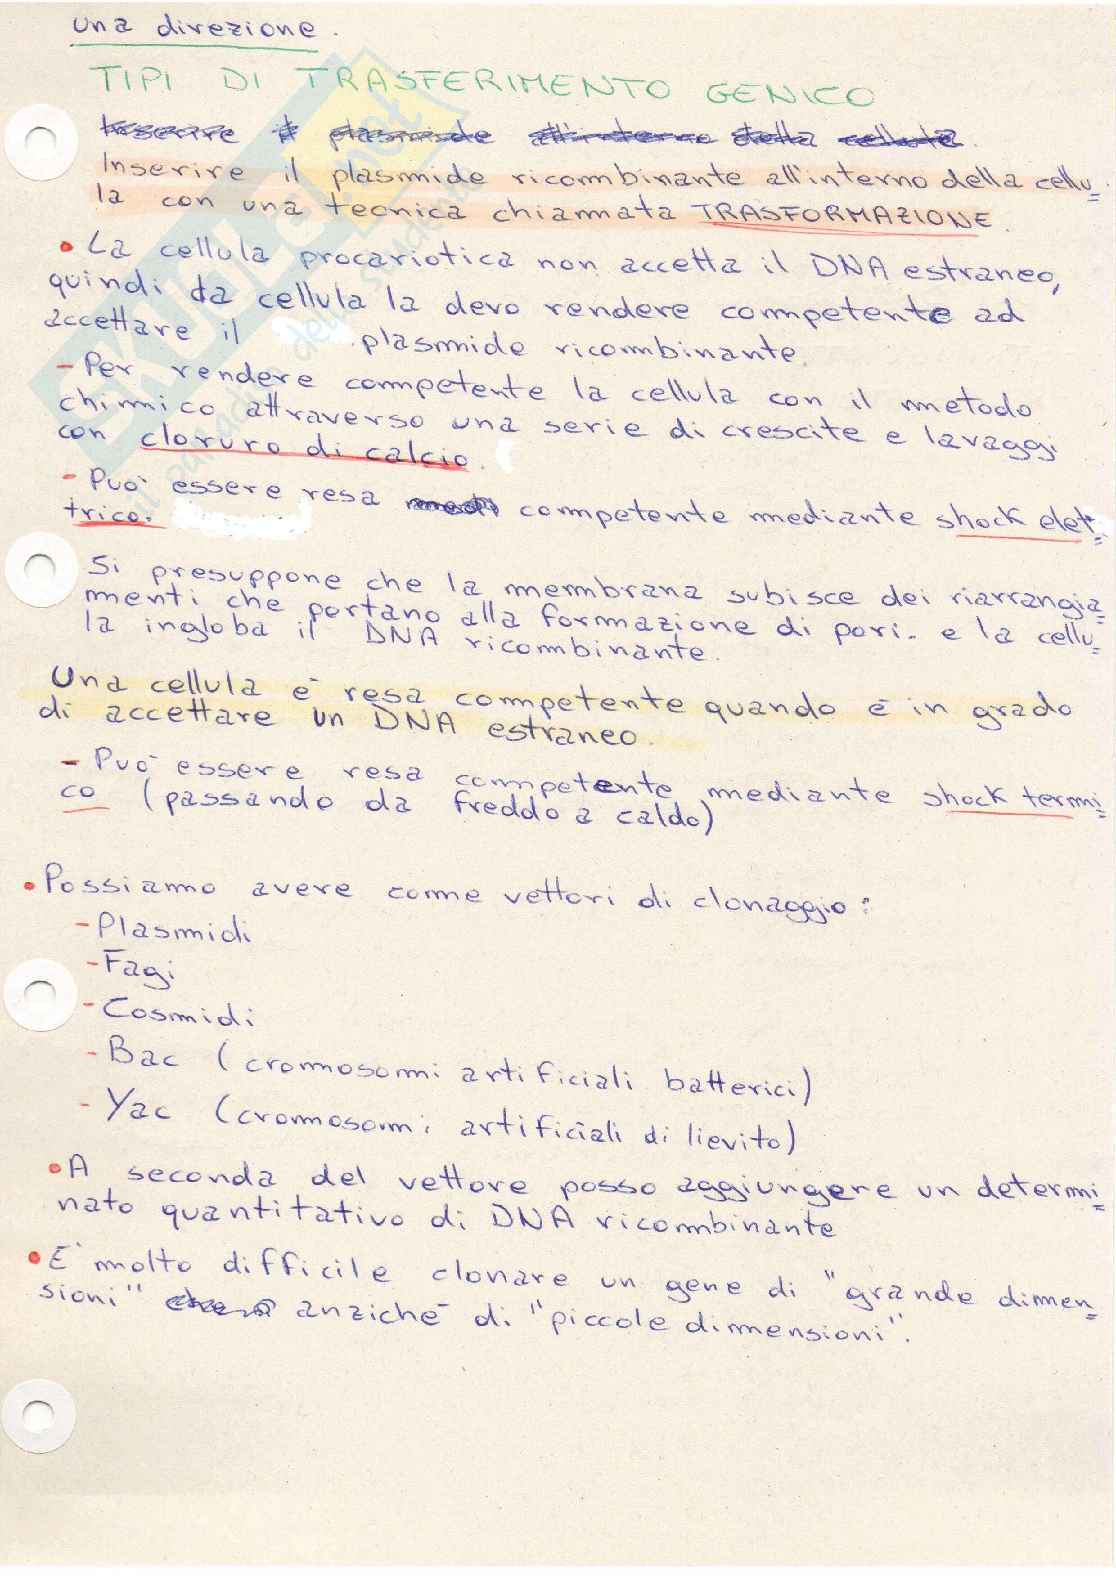 una direzione.
TIPI DI TRASFERIMENTO GENICO
Inserire il plasmide ricombinante all'interno della cellu=
la con una tecnica chiamata TRASFORMAZIONE.
• La cellula procariotica non accetta il DNA estraneo,
quindi la cellula la devo rendere competente ad
accettare il plasmide ricombinante.
- Per rendere competente la cellula con il metodo
chimico attraverso una serie di crescite e lavaggi
con cloruro di calcio.
- Può essere resa competente mediante shock elet=
trico.
Si presuppone che la membrana subisce dei riarrangia=
menti che portano alla formazione di pori. e la cellu=
la ingloba il DNA ricombinante.
Una cellula è resa competente quando è in grado
di accettare un DNA estraneo.
- Può essere resa competente mediante shock termi=
co (passando da freddo a caldo)
• Possiamo avere come vettori di clonaggio:
- Plasmidi
- Fagi
- Cosmidi
- Bac (cromosomi artificiali batterici)
- Yac (cromosomi artificiali di lievito)
• A seconda del vettore posso aggiungere un determi=
nato quantitativo di DNA ricombinante
• E' molto difficile clonare un gene di "grande dimen=
sioni" anzichè di "piccole dimensioni".